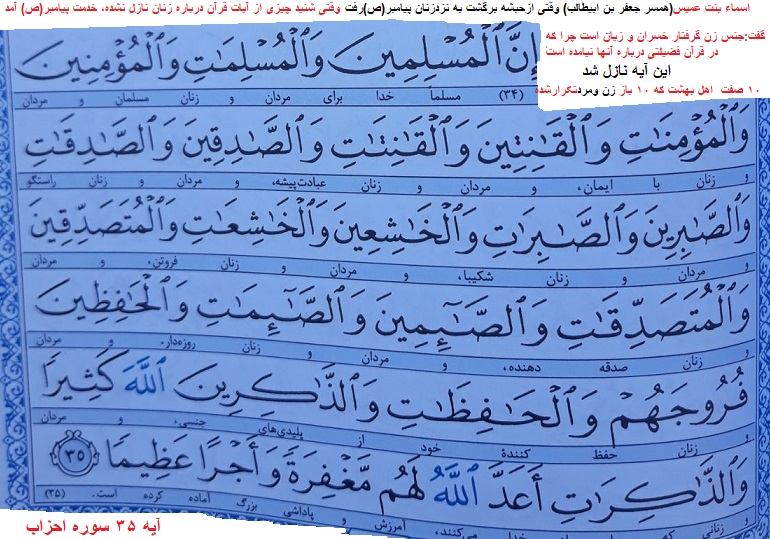 اسماء بنت عمیس(همسر جعفر بن ابیطالب) وقتی ازحبشه برگشت به نزدزنان پیامبر(ص)رفت وقتی شنید چیزی از آیات قرآن درباره زنان نازل نشده، خدمت پیامبر(ص) آمد
گفت:جنس زن گرفتار خسران و زیان است چرا که
در قرآن فضیلتی درباره آنها نیامده است
این آیه نازل شد
۱۰ صفت اهل بهشت که ۱۰ باز زن ومردتکرارشده
إِنَّ ٱلْمُسْلِمِينَ وَٱلْمُسْلِمَٰتِ وَٱلْمُؤْمِنِينَ
(۳۴) مسلماً خدا برای مردان و زنان مسلمان و مردان
وَٱلْمُؤْمِنَٰتِ وَٱلْقَٰنِتِينَ وَٱلْقَٰنِتَٰتِ وَٱلصَّٰدِقِينَ وَٱلصَّٰدِقَٰتِ
و زنان با ایمان، و مردان و زنان عبادت‌پیشه، و مردان و زنان راستگو
وَٱلصَّٰبِرِينَ وَٱلصَّٰبِرَٰتِ وَٱلْخَٰشِعِينَ وَٱلْخَٰشِعَٰتِ وَٱلْمُتَصَدِّقِينَ
و مردان و زنان شکیبا، و مردان و زنان فروتن، و مردان
وَٱلْمُتَصَدِّقَٰتِ وَٱلصَّٰٓئِمِينَ وَٱلصَّٰٓئِمَٰتِ وَٱلْحَٰفِظِينَ
و زنان صدقه دهنده، و مردان و زنان روزه‌دار، و مردان
فُرُوجَهُمْ وَٱلْحَٰفِظَٰتِ وَٱلذَّٰكِرِينَ ٱللَّهَ كَثِيرًا
و زنان حفظ کنندهٔ خود از پلیدی‌های جنسی، و مردان
وَٱلذَّٰكِرَٰتِ أَعَدَّ ٱللَّهُ لَهُم مَّغْفِرَةً وَأَجْرًا عَظِيمًا ۳۵
و زنانی که خدا می‌کنند، آمرزش و پاداشی بزرگ آماده کرده است. (۳۵)
آیه ۳۵ سوره احزاب